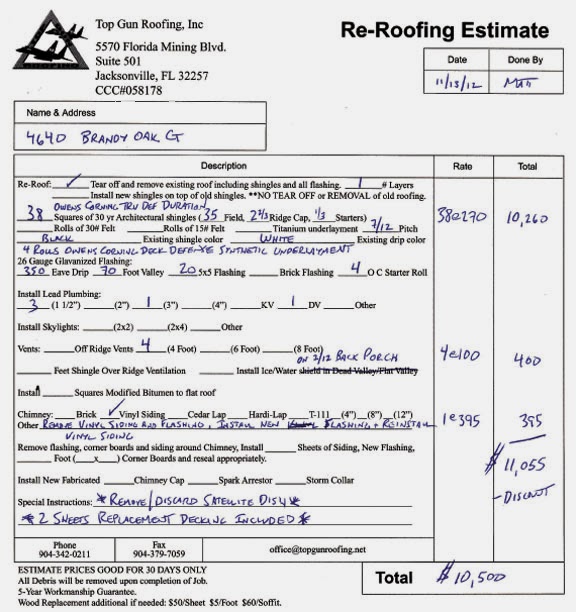 Top Gun Roofing, Inc
5570 Florida Mining Blvd.
Suite 501
Jacksonville, FL 32257
CCC#058178
Re-Roofing Estimate
Date Done By
11/13/12 MATT
Name & Address
4640 BRANDY OAK CT
Description Rate Total
Re-Roof: ✓ Tear off and remove existing roof including shingles and all flashing. 1 # Layers
Install new shingles on top of old shingles. **NO TEAR OFF or REMOVAL of old roofing.
OWENS CORNING TRU DEF DURATION
38 Squares of 30 yr Architectural shingles (35 Field, 2 2/3 Ridge Cap, 1/3 Starters) 38@270 10,260
Rolls of 30# Felt Rolls of 15# Felt Titanium underlayment 7/12 Pitch
BLACK Existing shingle color WHITE Existing drip color
4 ROLLS OWENS CORNING DECK DEFENSE SYNTHETIC UNDERLAYMENT
26 Gauge Glavanized Flashing:
350 Eave Drip 70 Foot Valley 20 5x5 Flashing Brick Flashing 4 O C Starter Roll
Install Lead Plumbing:
3 (1 1/2") (2") 1 (3") (4") KV 1 DV Other
Install Skylights: (2x2) (2x4) Other
Vents: Off Ridge Vents 4 (4 Foot) (6 Foot) (8 Foot) 4@100 400
ON 2/12 BACK PORCH
Feet Shingle Over Ridge Ventilation Install Ice/Water shield in Dead Valley/Flat Valley
Install Squares Modified Bitumen to flat roof
Chimney: Brick ✓ Vinyl Siding Cedar Lap Hardi-Lap T-111 (4") (8") (12")
Other REMOVE VINYL SIDING AND FLASHING, INSTALL NEW FLASHING + REINSTALL 1@395 395
VINYL SIDING
Remove flashing, corner boards and siding around Chimney, Install Sheets of Siding, New Flashing,
Foot (x) Corner Boards and reseal appropriately.
$11,055
Install New Fabricated Chimney Cap Spark Arrestor Storm Collar
- DISCOUNT
Special Instructions: *REMOVE/DISCARD SATELLITE DISH*
*2 SHEETS REPLACEMENT DECKING INCLUDED*
Phone Fax office@topgunroofing.net
904-342-0211 904-379-7059
ESTIMATE PRICES GOOD FOR 30 DAYS ONLY
All Debris will be removed upon completion of Job.
5-Year Workmanship Guarantee.
Wood Replacement additional if needed: $50/Sheet $5/Foot $60/Soffit.
Total $10,500